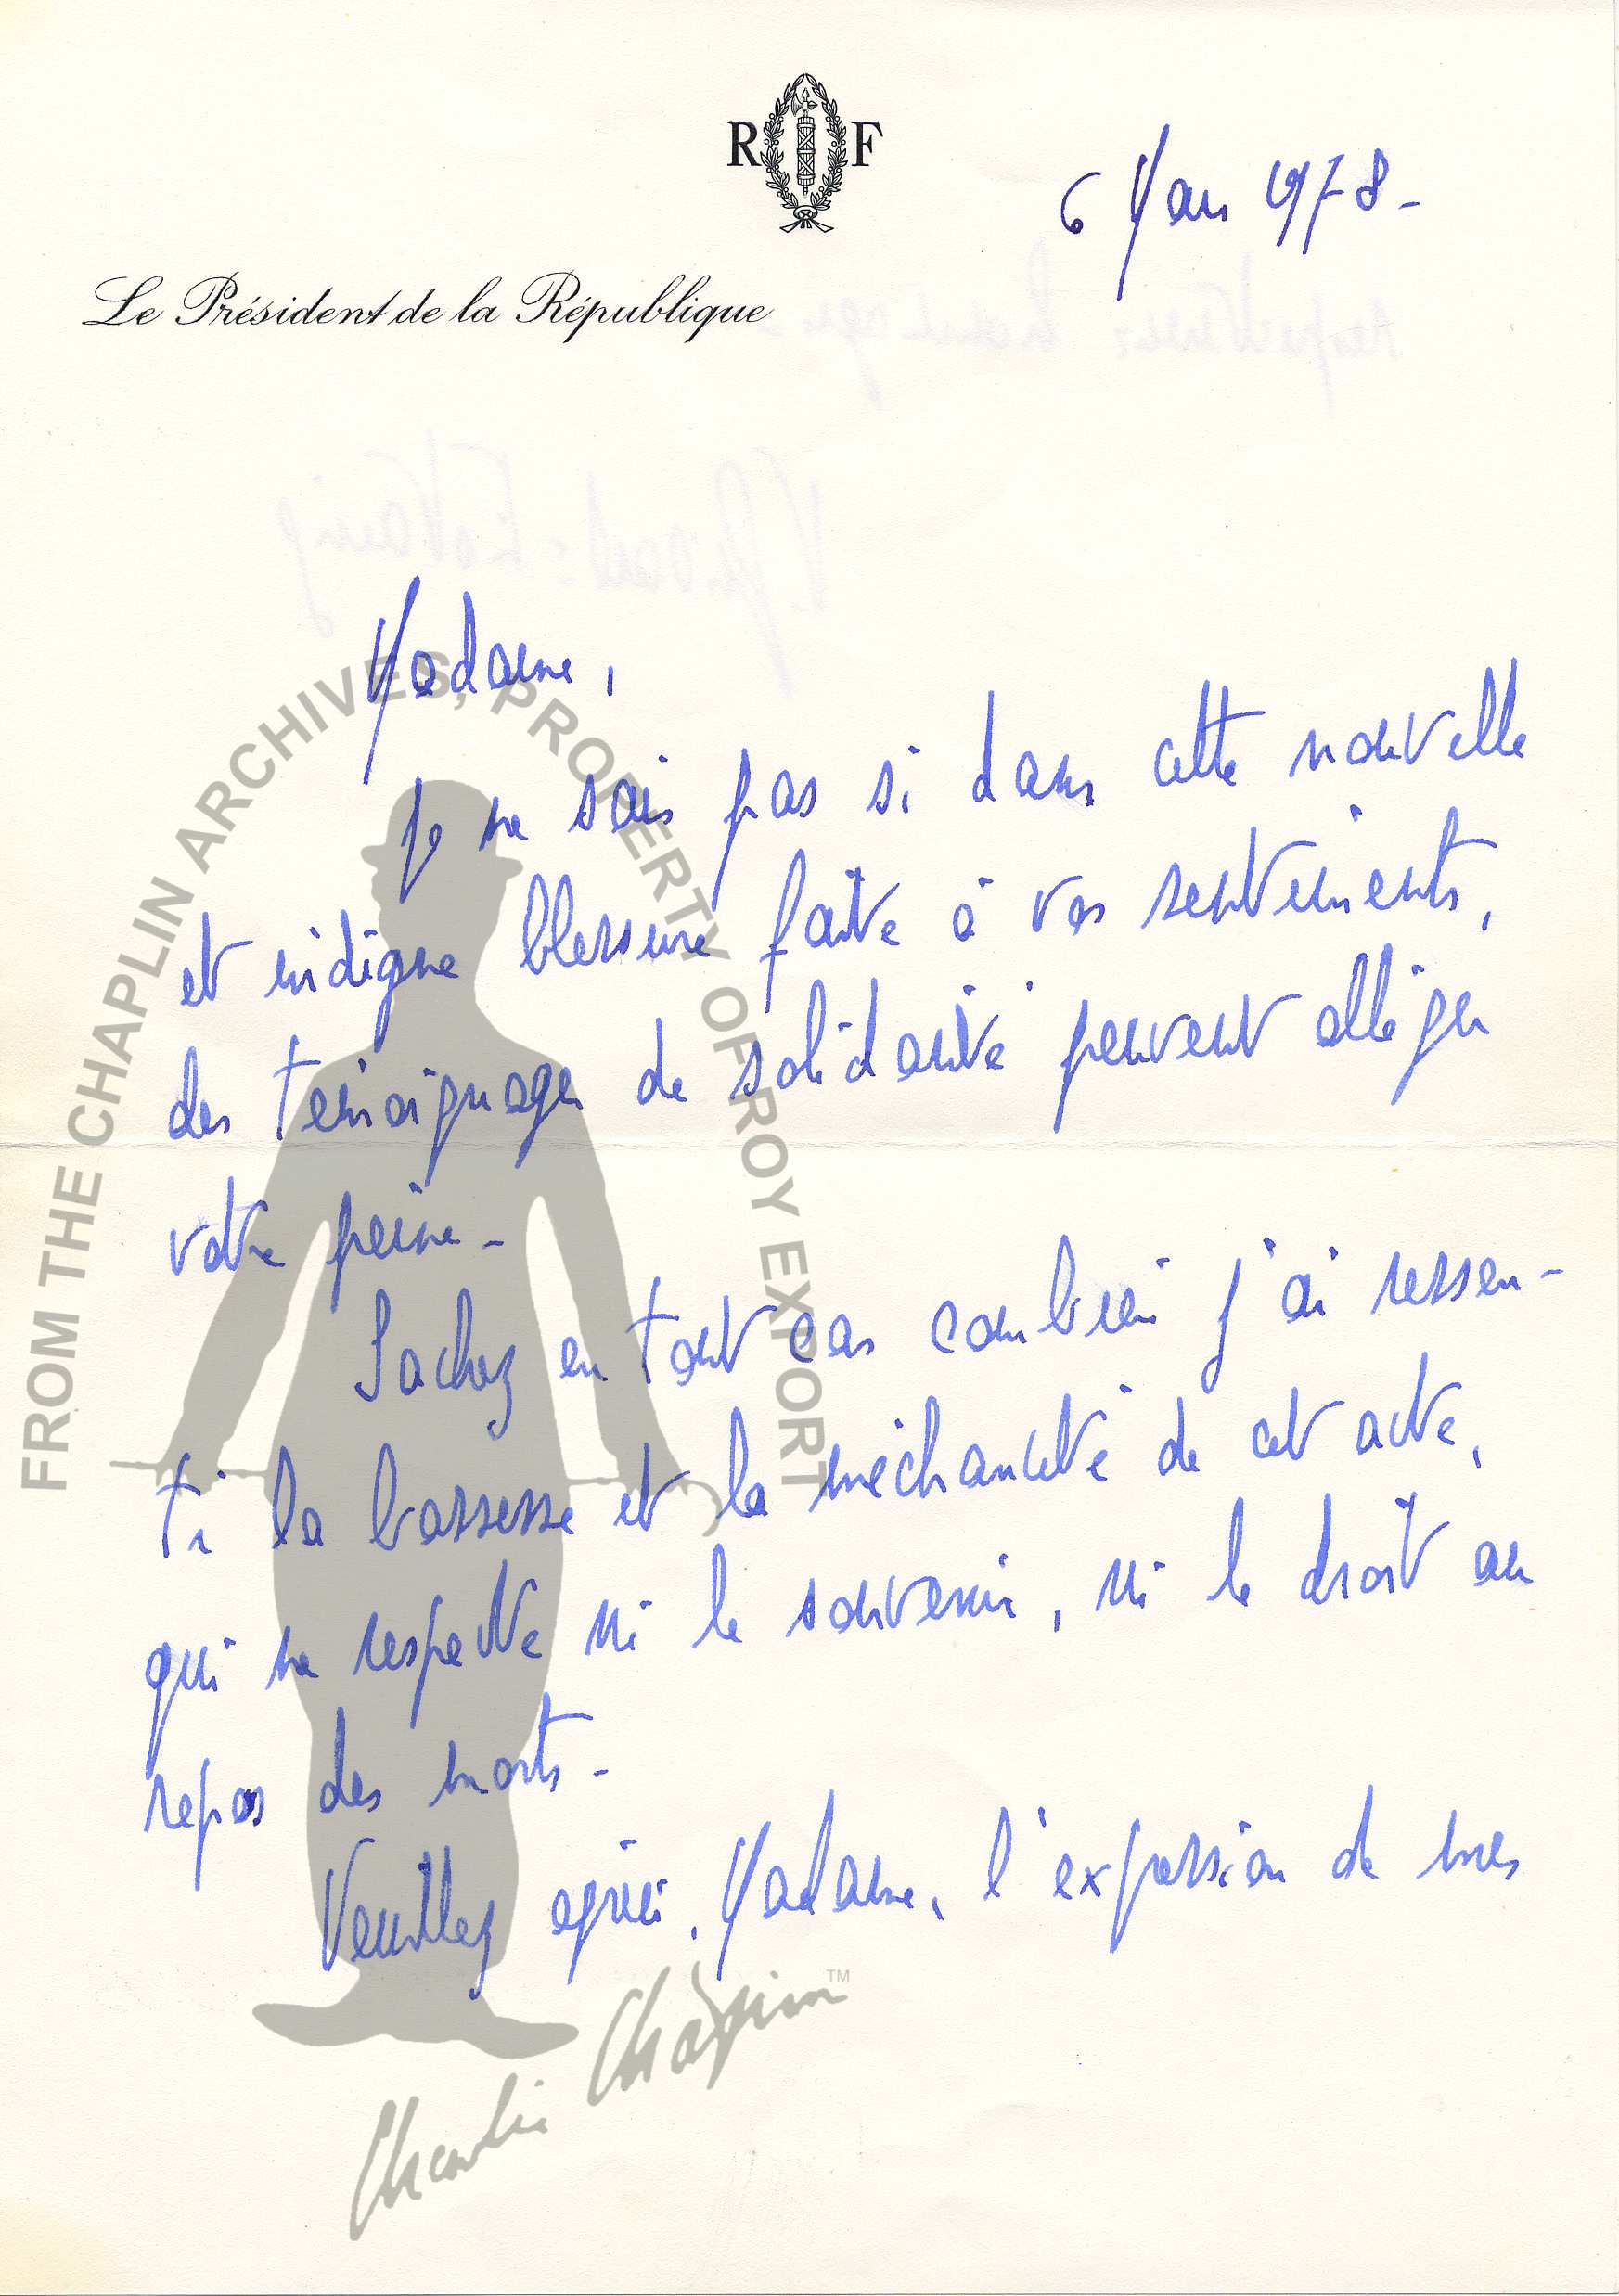 R F
6 Mars 1978 -
Le Président de la République
Madame,
Je ne sais pas si dans cette nouvelle
et indigne blessure faite à vos sentiments,
des témoignages de solidarité peuvent alléger
votre peine -
Sachez en tout cas combien j'ai ressen-
ti la bassesse et la méchanceté de cet acte,
qui ne respecte ni le souvenir, ni le droit au
repos des morts -
Veuillez agréer, Madame, l'expression de mes
respectueux hommages -
V. Giscard d'Estaing
FROM THE CHAPLIN ARCHIVES, PROPERTY OF ROY EXPORT
Charlie Chaplin™